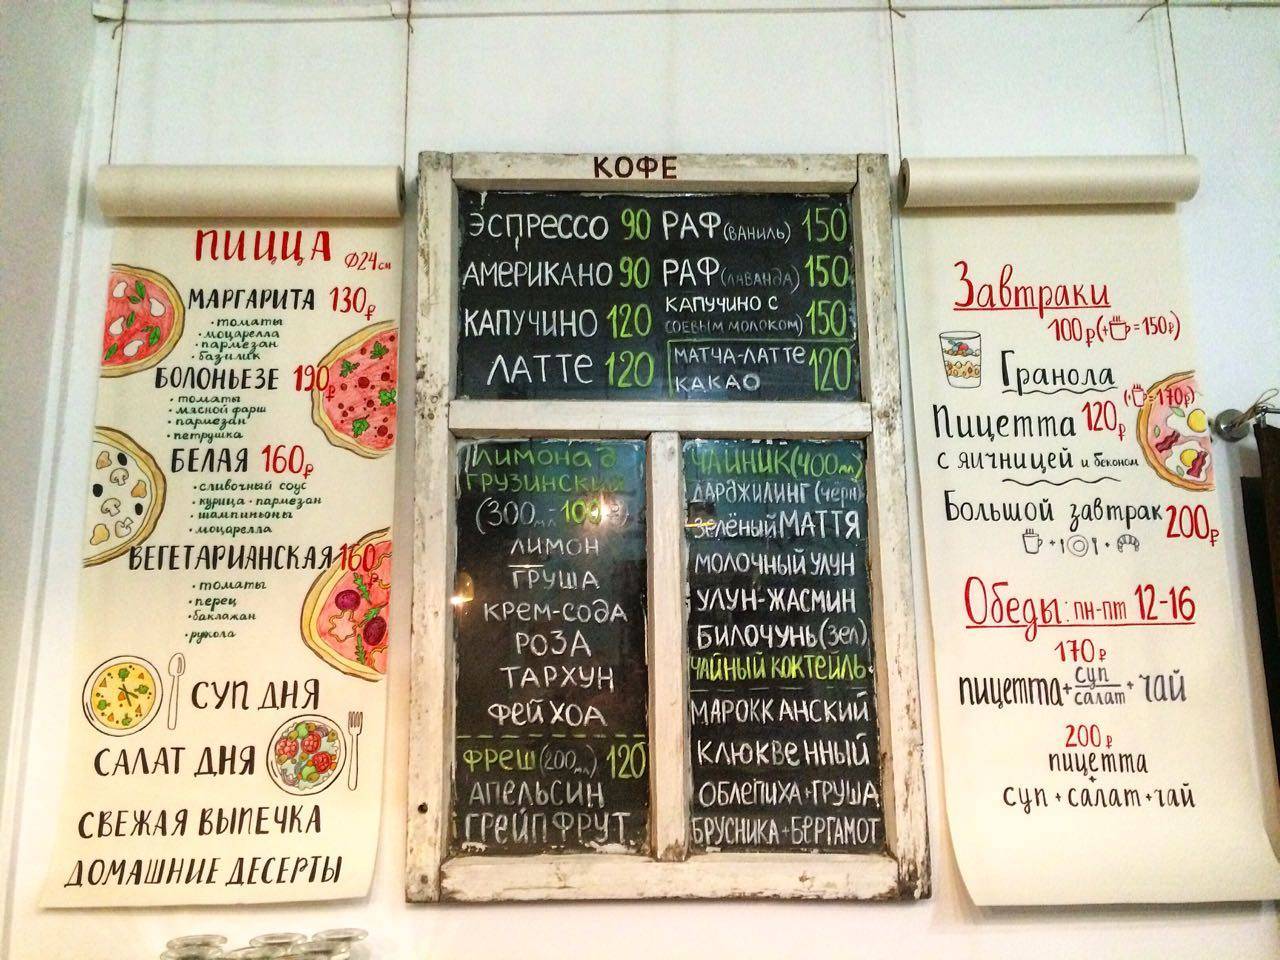 ПИЦЦА Ø24см
МАРГАРИТА 130₽
• томаты
• моцарелла
• пармезан
• базилик
БОЛОНЬЕЗЕ 190₽
• томаты
• мясной фарш
• пармезан
• петрушка
БЕЛАЯ 160₽
• сливочный соус
• курица • пармезан
• шампиньоны
• моцарелла
ВЕГЕТАРИАНСКАЯ 160₽
• томаты
• перец
• баклажан
• рукола
СУП ДНЯ
САЛАТ ДНЯ
СВЕЖАЯ ВЫПЕЧКА
ДОМАШНИЕ ДЕСЕРТЫ
КОФЕ
ЭСПРЕССО 90
АМЕРИКАНО 90
КАПУЧИНО 120
ЛАТТЕ 120
РАФ (ВАНИЛЬ) 150
РАФ (ЛАВАНДА) 150
КАПУЧИНО С
СОЕВЫМ МОЛОКОМ) 150
МАТЧА-ЛАТТЕ
КАКАО 120
ЛИМОНАД
ГРУЗИНСКИЙ
(300мл - 100₽)
ЛИМОН
ГРУША
КРЕМ-СОДА
РОЗА
ТАРХУН
ФЕЙХОА
ФРЕШ (200мл) 120
АПЕЛЬСИН
ГРЕЙПФРУТ
ЧАЙНИК (400мл)
ДАРДЖИЛИНГ (чёрн)
Зелёный МАТТЯ
МОЛОЧНЫЙ УЛУН
УЛУН-ЖАСМИН
БИЛОЧУНЬ (зел)
ЧАЙНЫЙ КОКТЕЙЛЬ
МАРОККАНСКИЙ
КЛЮКВЕННЫЙ
ОБЛЕПИХА+ГРУША
БРУСНИКА+БЕРГАМОТ
Завтраки
100₽ (+ = 150₽)
Гранола
(+ = 170₽)
Пицетта 120₽
с яичницей и беконом
Большой завтрак 200₽
+ +
Обеды: пн-пт 12-16
170₽
пицетта + суп/салат + чай
200₽
пицетта
+
суп + салат + чай